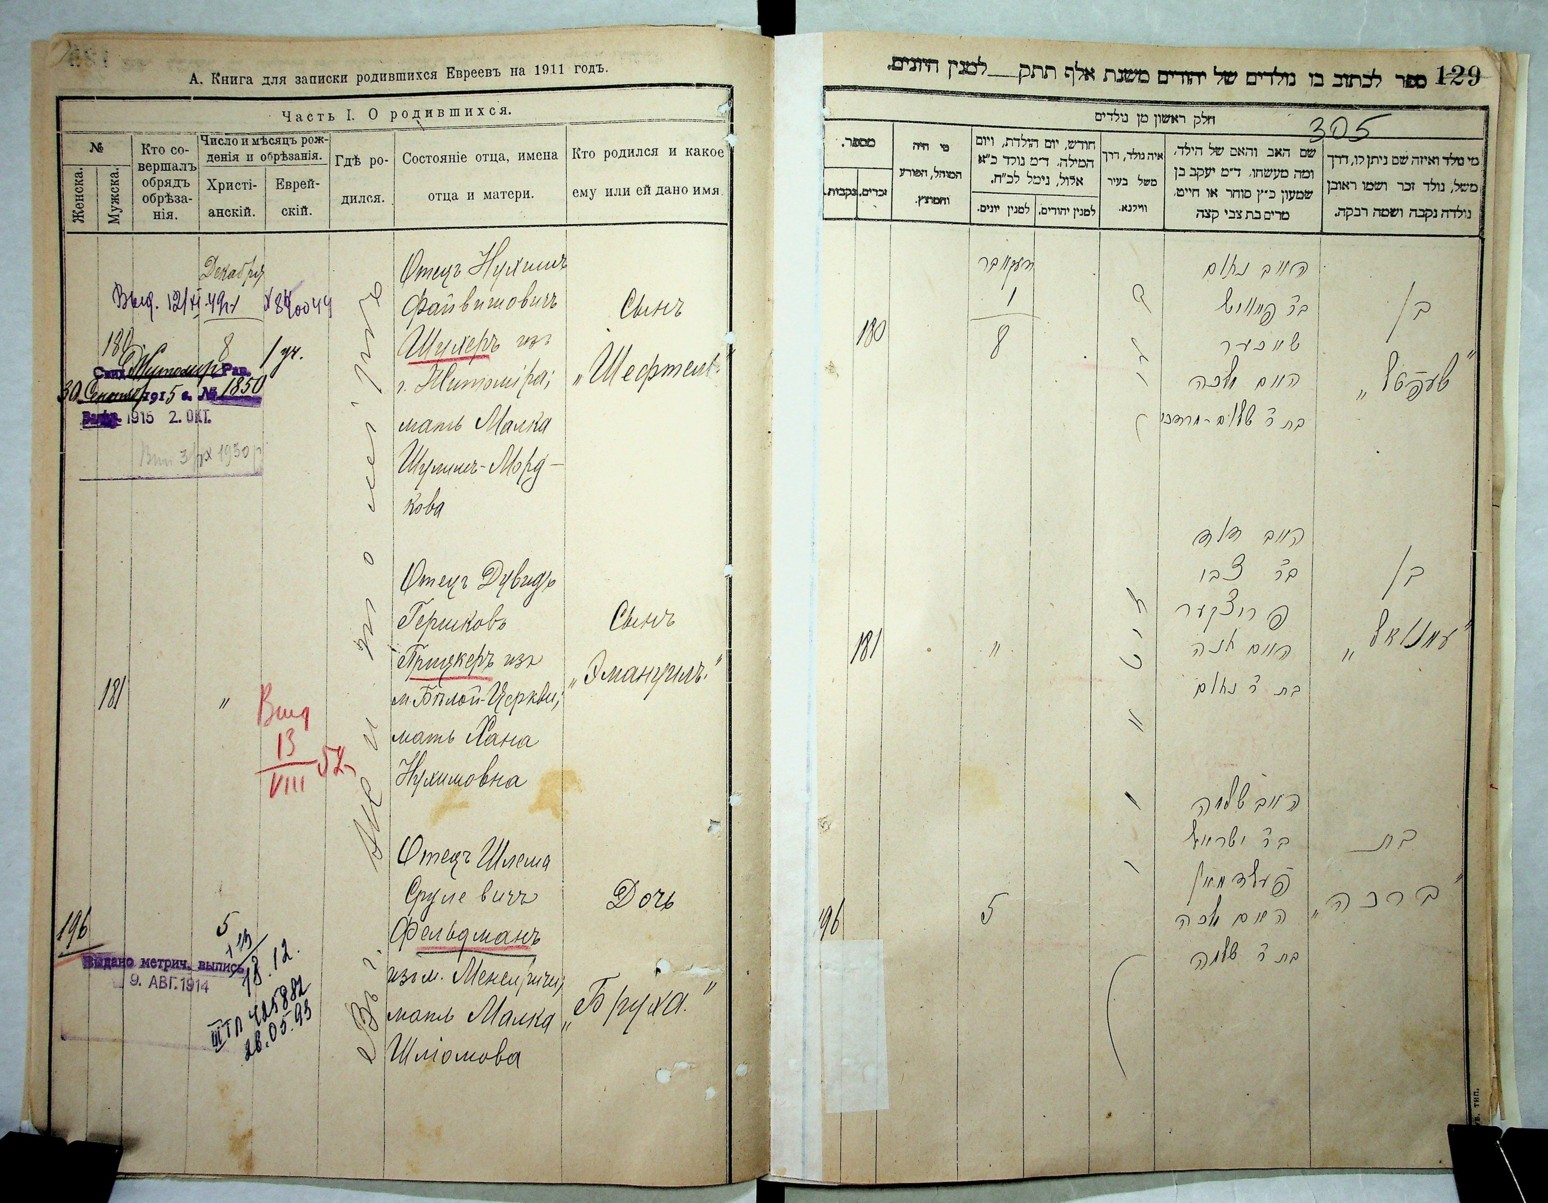 А. Книга для записки родившихся Евреевъ на 1911 годъ.
Часть I. О родившихся.
№
Женска.
Мужска.
Кто со-
вершалъ
обрядъ
обрѣза-
нія.
Число и мѣсяцъ рож-
денія и обрѣзанія.
Христі-
анскій.
Еврей-
скій.
Гдѣ ро-
дился.
Состояніе отца, имена
отца и матери.
Кто родился и какое
ему или ей дано имя.
Декабря
1
8
180
Отецъ Нухимъ
Файвишовичъ
Шухеръ изъ
г. Житоміра;
мать Малка
Шулимъ-Морд-
кова
Сынъ
„Шефтель“
30 1915 г. № 1850
1915 2. ОКТ.
Въ г. Житомірѣ
181
„
Отецъ Дувидъ
Гершковъ
Прицкеръ изъ
м. Бѣлой-Церкви;
мать Хана
Нухимовна
Сынъ
„Эмануилъ“
Выд
13
VIII
196
5
Отецъ Шлема
Срулевичъ
Фельдманъ
изъ м.
мать Малка
Шліомова
Дочь
„Бруха“
Выдано метрич. выпись
9. АВГ. 1914
13.12.
III ТП 425882
28.05.93
129
ספר לכתוב בו נולדים של יהודים משנת אלף תתק למנין היונים.
חלק ראשון מן נולדים
305
מי נולד ואיזה שם ניתן לו, דרך
משל, נולד זכר ושמו ראובן
נולדה נקבה ושמה רבקה.
שם האב והאם של הילד,
ומה מעשהו. ד״מ יעקב בן
שמעון כ״ץ סוחר או חיים.
מרים בת צבי קצה
איה נולד, דרך
משל בעיר
ווילנא.
חודש, יום הולדת, ויום
המילה. ד״מ נולד כ״א
אלול, נימל לכ״ח.
למנין יהודים.
למנין יונים.
מי היה
המוהל, הפורע
והמוצץ.
מספר.
זכרים.
נקבות.
דעקאבר
1
8
180
האב נחום
בר פייוויש
שוכער
האם מלכה
בת ר׳ שלום-מרדכי
בן
„שעפטל“
181
„
האב דוד
בר צבי
פריצקער
האם חנה
בת ר׳ נחום
בן
„עמנואל“
196
5
האב שלמה
בר ישראל
פעלדמאן
האם מלכה
בת ר׳ שלמה
בת
„ברכה“